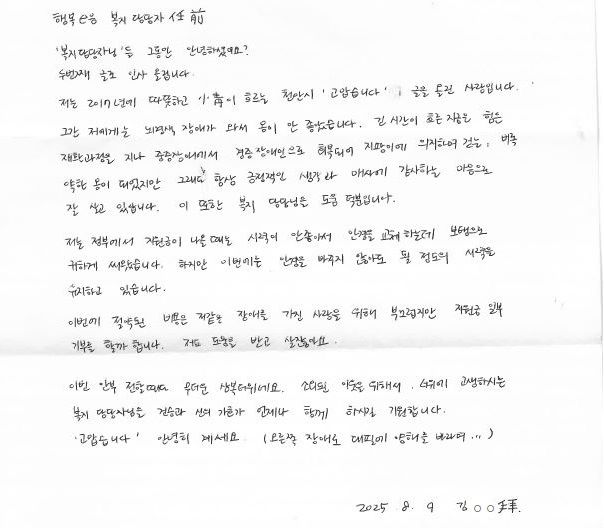 행복e음 복지 담당자 任 前
'복지담당자님'들 그동안 안녕하셨어요?
두번째 글로 인사 올립니다.
저는 2017년에 따뜻하고 人情이 흐르는 천안시 '고맙습니다' 글을 올린 사람입니다.
그간 저에게는 뇌경색 장애가 와서 몸이 안 좋았습니다. 긴 시간이 흐른 지금은 힘든
재활과정을 지나 중증장애에서 경증장애인으로 회복되어 지팡이에 의지하여 걷는, 비록
약한 몸이 되었지만 그래도 항상 긍정적인 생각과 매사에 감사하는 마음으로
잘 살고 있습니다. 이 또한 복지 담당님을 도움 덕분입니다.
저는 정부에서 지원금이 나올 때는 시력이 안좋아서 안경을 교체 하는데 보탬으로
귀하게 써왔습니다. 하지만 이번에는 안경을 바꾸지 않아도 될 정도의 시력을
유지하고 있습니다.
이번에 절약된 비용은 저같은 장애를 가진 사람을 위해 부끄럽지만 지원금 일부
기부를 할까 합니다. 저도 도움을 받고 살잖아요.
이번 안부 전할때도 무더운 삼복더위네요. 소외된 이웃을 위해서, 더위에 고생하시는
복지 담당자님을 건승과 신의 가호가 언제나 함께 하시길 기원합니다.
'고맙습니다' 안녕히 계세요. (오른쪽 장애로 대필에 양해를 바라며...)
2025. 8. 9 김○○拜.